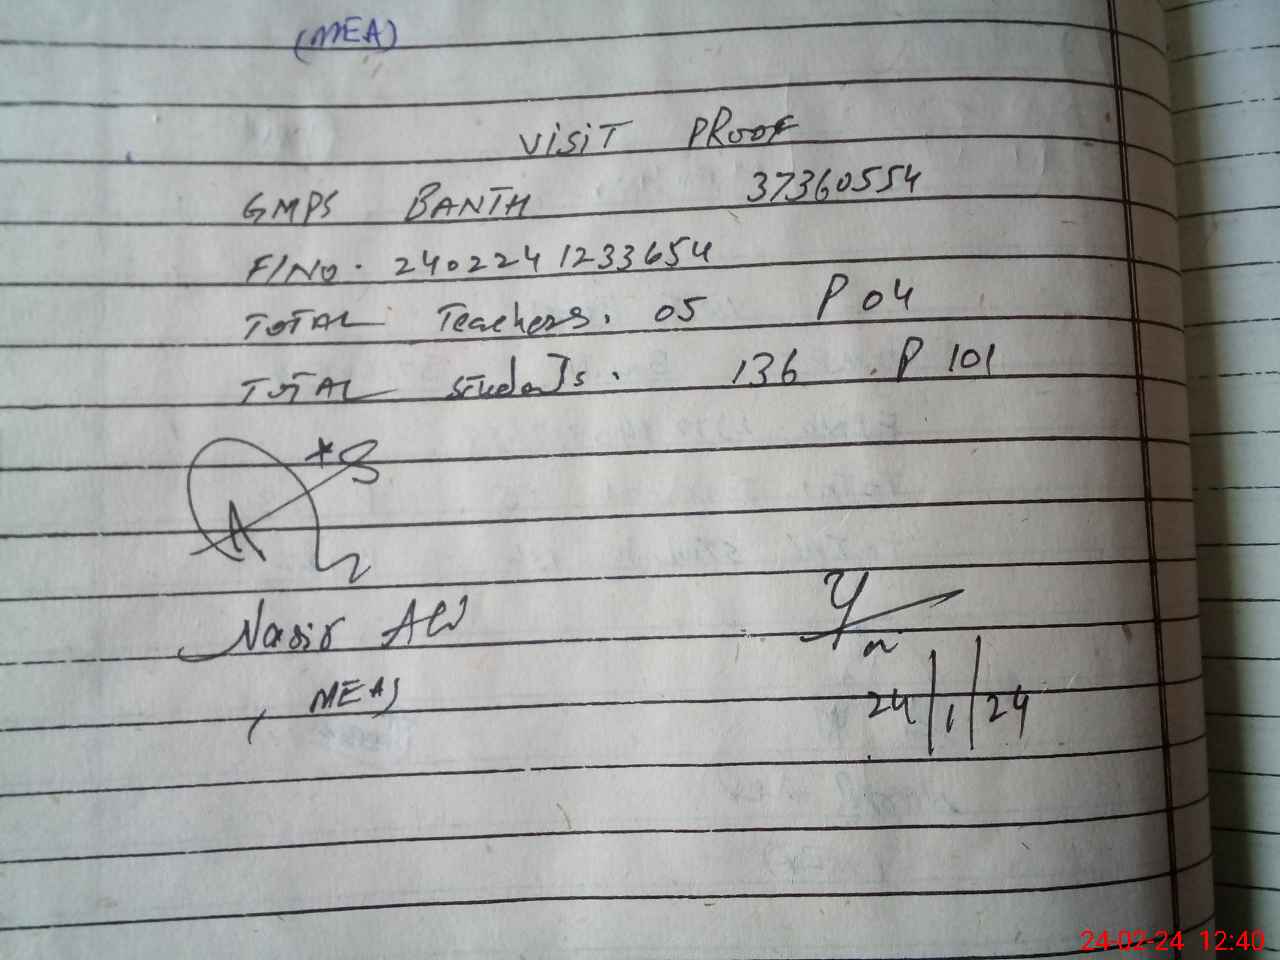 (MEA)
VISIT PROOF
GMPS BANTH 37360554
F/NO. 2402241233654
TOTAL Teachers. 05 P 04
TOTAL students. 136 . P 101
Nasir Ali
(MEA)
24/1/24
24-02-24 12:40